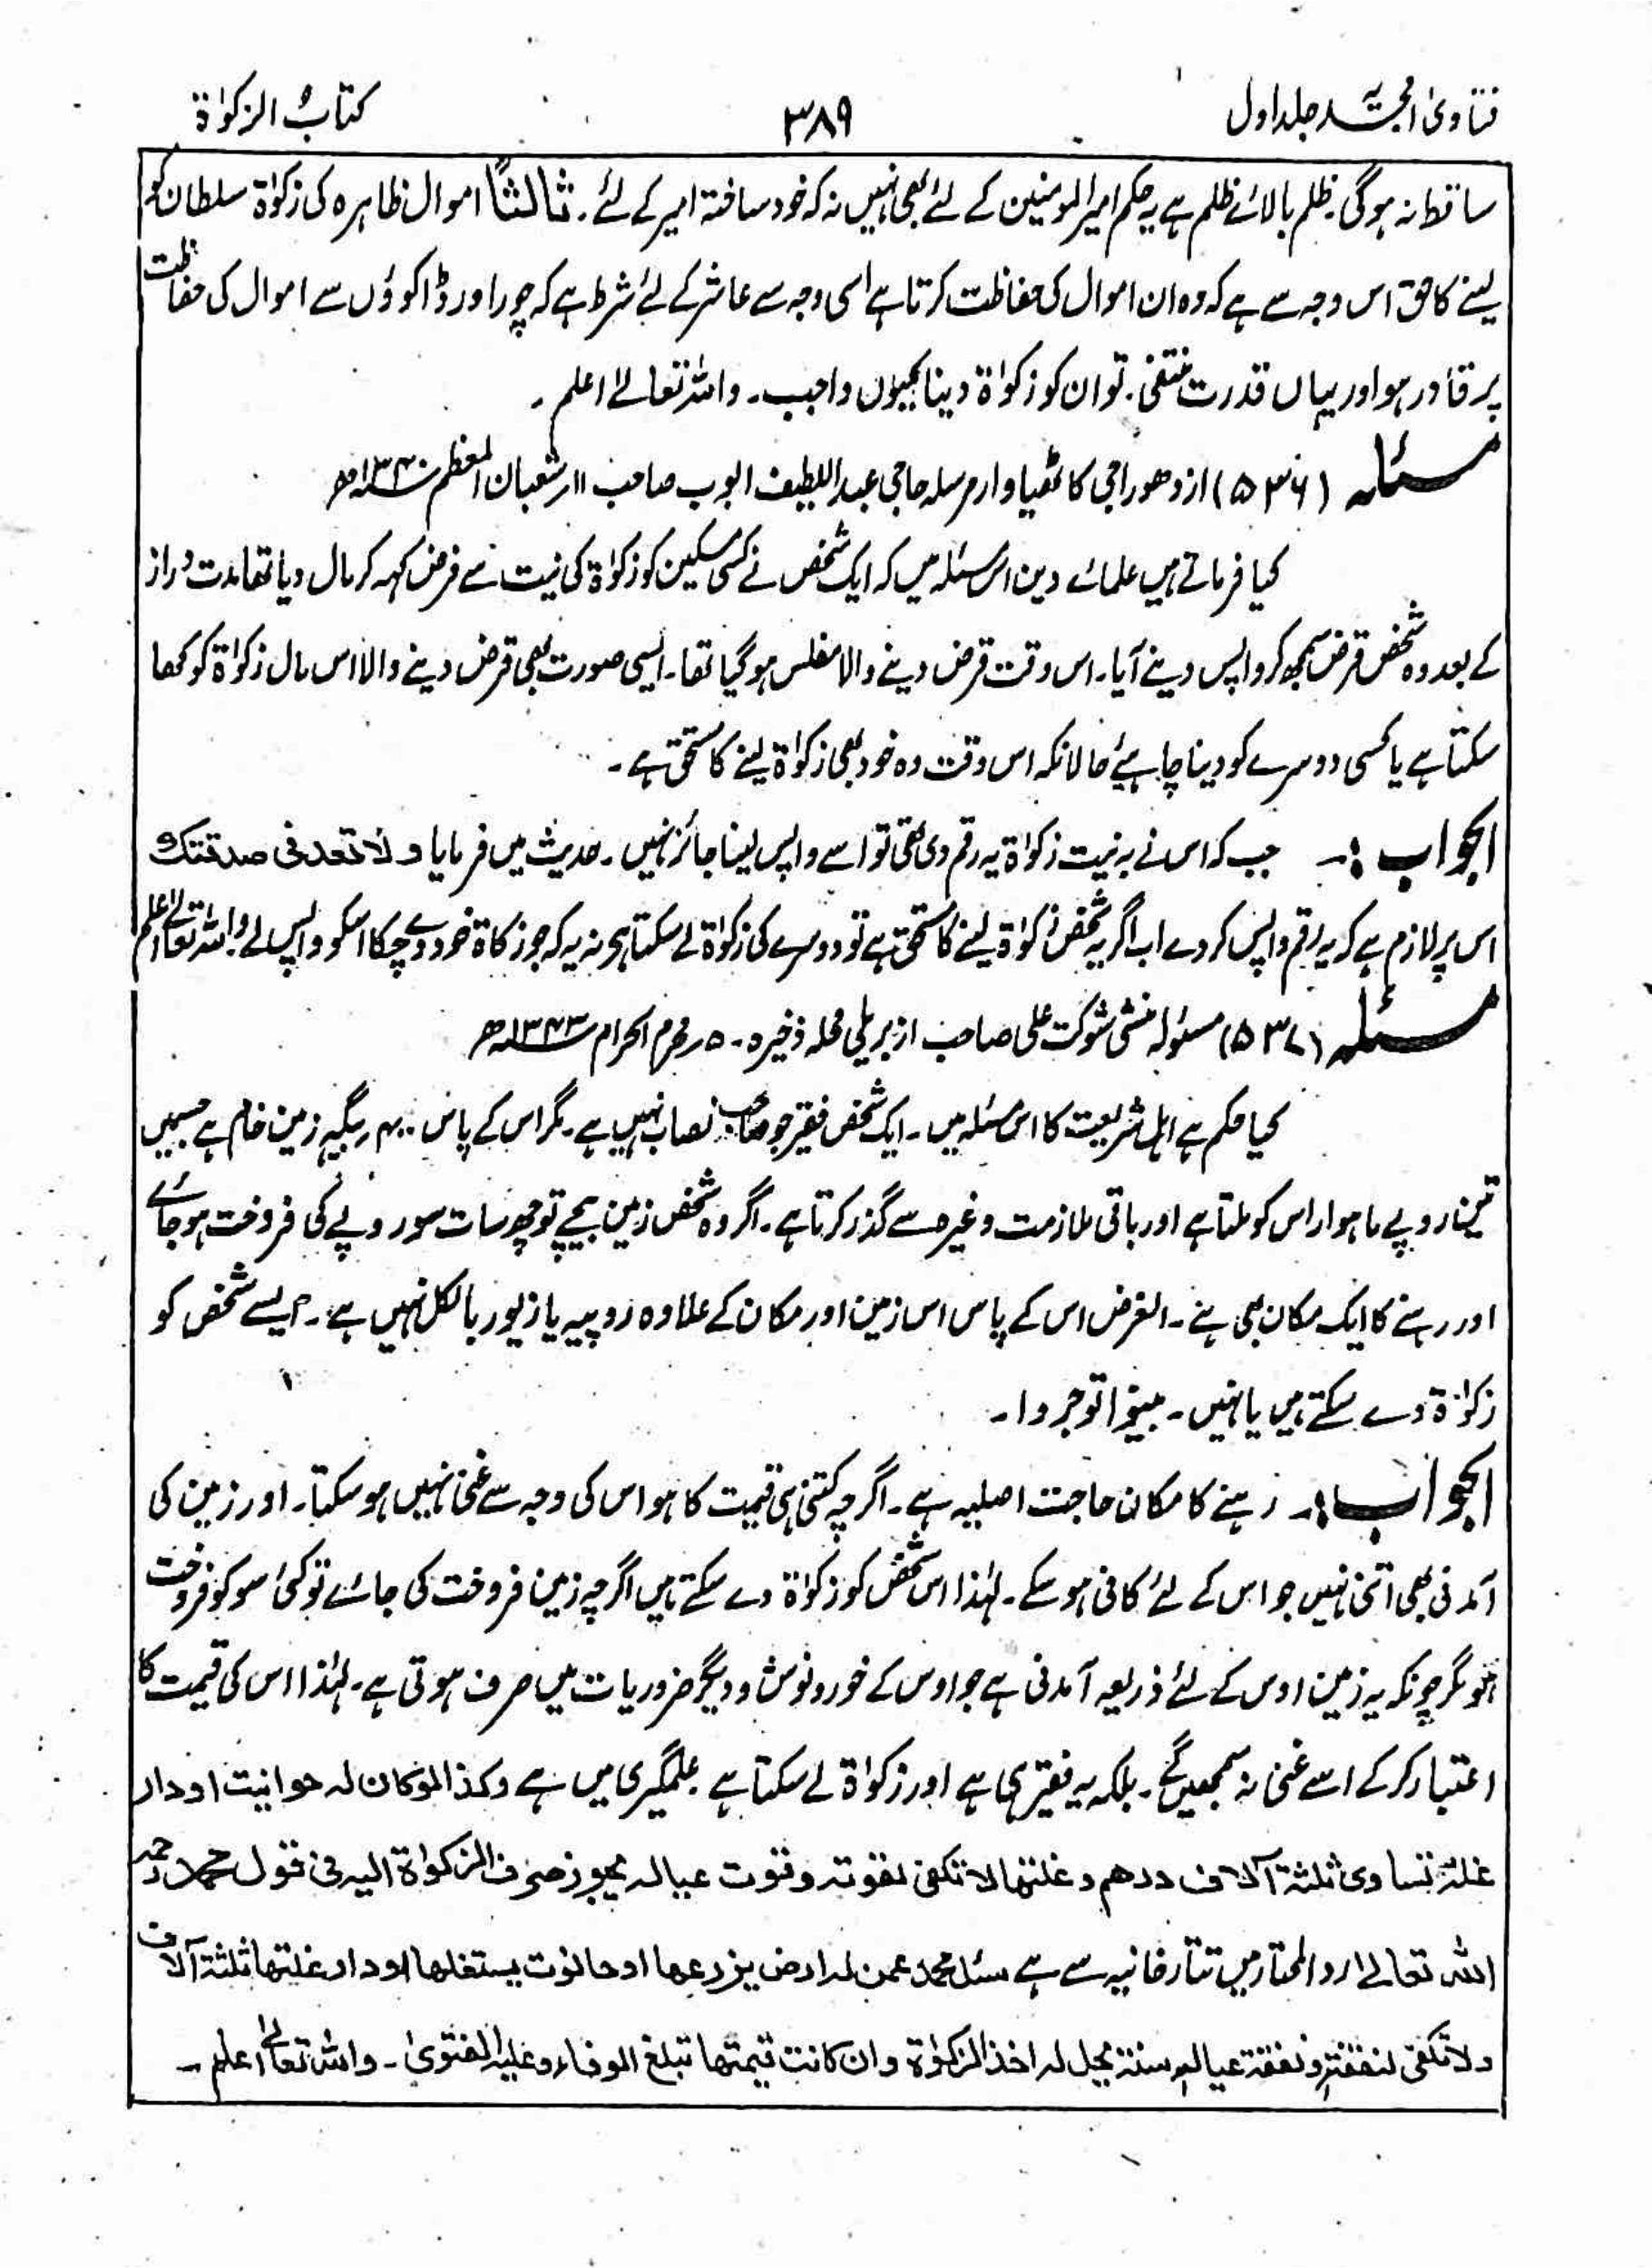 فتاویٰ امجدیہ جلد اول
۳۸۹
کتابُ الزکوٰۃ
ساقط نہ ہوگی۔ ظلم بالائے ظلم ہے یہ حکم امیر المومنین کے لئے بھی نہیں نہ کہ خود ساختہ امیر کے لئے۔ ثالثاً اموال ظاہرہ کی زکوٰۃ سلطان کو
لینے کا حق اس وجہ سے ہے کہ وہ ان اموال کی حفاظت کرتا ہے اسی وجہ سے عاشر کے لئے شرط ہے کہ چور اور ڈاکوؤں سے اموال کی حفاظت
پر قادر ہو اور یہاں قدرت منتفی۔ تو ان کو زکوٰۃ دینا کیوں واجب۔ واللہ تعالےٰ اعلم۔
مسئلہ (۵۳۶) از دھوراجی کاٹھیاوار مرسلہ حاجی عبداللطیف ایوب صاحب ۱۱ر شعبان المعظم ۱۳۴۰ھ
کیا فرماتے ہیں علمائے دین اس مسئلہ میں کہ ایک شخص نے کسی مسکین کو زکوٰۃ کی نیت سے قرض کہہ کر مال دیا تھا مدت دراز
کے بعد وہ شخص قرض سمجھ کر واپس دینے آیا۔ اس وقت قرض دینے والا مفلس ہو گیا تھا۔ ایسی صورت بھی قرض دینے والا اس مال زکوٰۃ کو کھا
سکتا ہے یا کسی دوسرے کو دینا چاہیئے حالانکہ اس وقت وہ خود بھی زکوٰۃ لینے کا مستحق ہے۔
الجواب :۔ جب کہ اس نے بہ نیت زکوٰۃ یہ رقم دی تھی تو اسے واپس لینا جائز نہیں۔ حدیث میں فرمایا ولا تعد فی صدقتک و
اس پر لازم ہے کہ یہ رقم واپس کر دے اب اگر یہ شخص زکوٰۃ لینے کا مستحق ہے تو دوسرے کی زکوٰۃ لے سکتا ہی نہ یہ کہ جو زکاۃ خود دے چکا اسکو واپس لے واللہ تعالےٰ اعلم
مسئلہ (۵۳۷) مسئولہ منشی شوکت علی صاحب از بریلی محلہ ذخیرہ۔ ۵ر محرم الحرام ۱۳۴۳ھ
کیا حکم ہے اہل شریعت کا اس مسئلہ میں۔ ایک شخص فقیر جو صاحب نصاب نہیں ہے۔ مگر اس کے پاس بیگہ زمین خام ہے جسمیں
تمینا روپے ماہوار اس کو ملتا ہے اور باقی ملازمت وغیرہ سے گذر کرتا ہے۔ اگر وہ شخص زمین بیچے تو چھ سات سو روپے کی فروخت ہو جائے
اور رہنے کا ایک مکان بھی ہے۔ الغرض اس کے پاس اس زمین اور مکان کے علاوہ روپیہ یا زیور بالکل نہیں ہے۔ ایسے شخص کو
زکوٰۃ دے سکتے ہیں یا نہیں۔ بینوا توجروا۔
الجواب :۔ رہنے کا مکان حاجت اصلیہ ہے۔ اگرچہ کتنی ہی قیمت کا ہو اس کی وجہ سے غنی نہیں ہو سکتا۔ اور زمین کی
آمدنی بھی اتنی نہیں جو اس کے لئے کافی ہو سکے۔ لہٰذا اس شخص کو زکوٰۃ دے سکتے ہیں اگرچہ زمین فروخت کی جائے تو کئی سو کو فروخت
ہو مگر چونکہ یہ زمین اوس کے لئے ذریعہ آمدنی ہے جو اوس کے خورد و نوش و دیگر ضروریات میں صرف ہوتی ہے۔ لہٰذا اس کی قیمت کا
اعتبار کر کے اسے غنی نہ سمجھیں گے۔ بلکہ یہ فقیر ہی ہے اور زکوٰۃ لے سکتا ہے علمگیری میں ہے وکذا لو کان لہ حوانیت او دار
غلۃ تساوی ثلثۃ آلاف درھم وغلتھا لا تکفی لقوتہ وقوت عیالہ یجوز صرف الزکواۃ الیہ فی قول محمد رحمہ
اللہ تعالےٰ رد المحتار میں تتارخانیہ سے ہے سئل محمد عمن لہ ارض یزرعھا او حانوت یستغلھا او دار غلتھا ثلثۃ آلاف
ولا تکفی لنفقتہ ونفقۃ عیالہ سنۃ یحل لہ اخذ الزکوٰۃ وان کانت قیمتھا تبلغ الوفا وعلیہ الفتویٰ۔ واللہ تعالےٰ اعلم۔